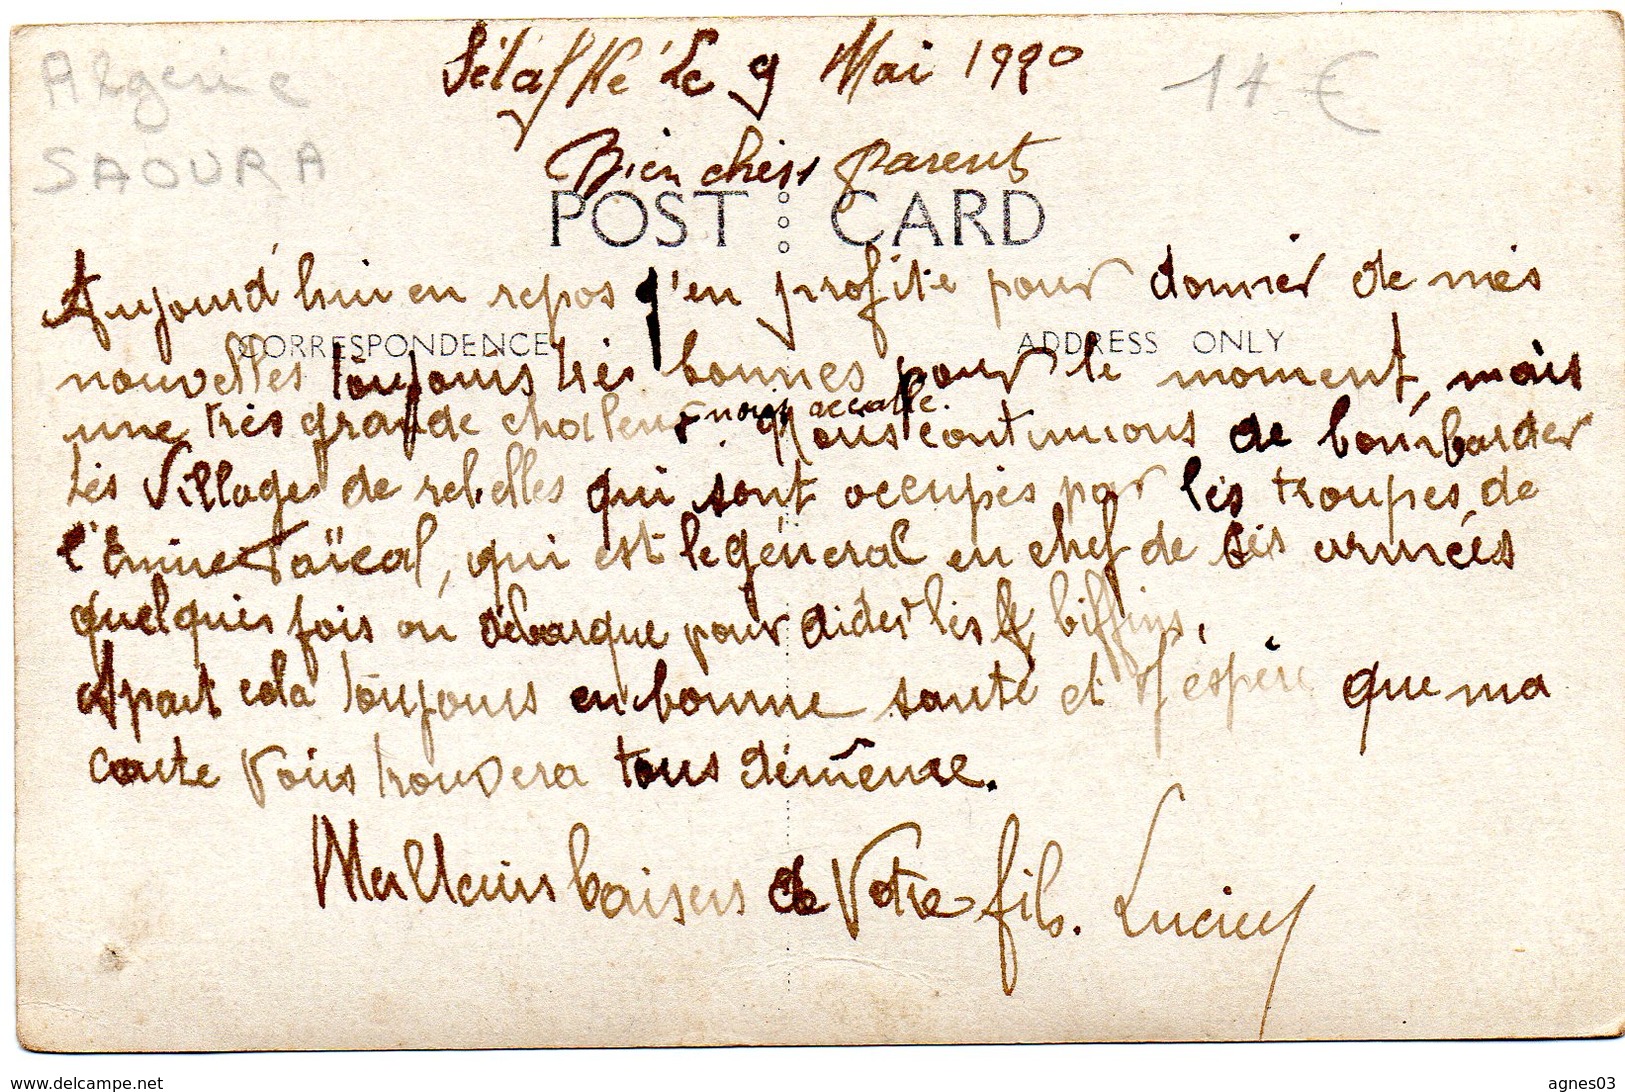 Algerie
SAOURA
14 €
Le 9 Mai 1920
Bien chers parents
POST CARD
Aujourd'hui en repos j'en profite pour donner de mes
CORRESPONDENCE
ADDRESS ONLY
nouvelles toujours très bonnes pour le moment, mais
une très grande chaleur nous accable. Nous continuons de bombarder
les Villages de rebelles qui sont occupés par les troupes de
l'Emine Faïcal, qui est le général en chef de ses armées
quelques fois on débarque pour aider les biffins.
Apart cela toujours en bonne santé et j'espère que ma
carte vous trouvera tous dimême.
Meilleurs baisers de Votre fils. Lucien
www.delcampe.net
agnes03